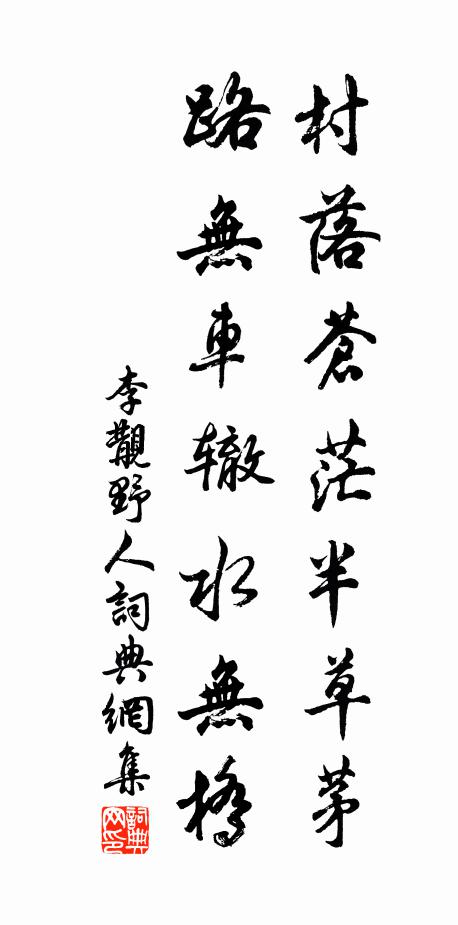 村落蒼茫半草茅
路無車辙水無橋
李觏野人詞典網集
詞典
网印